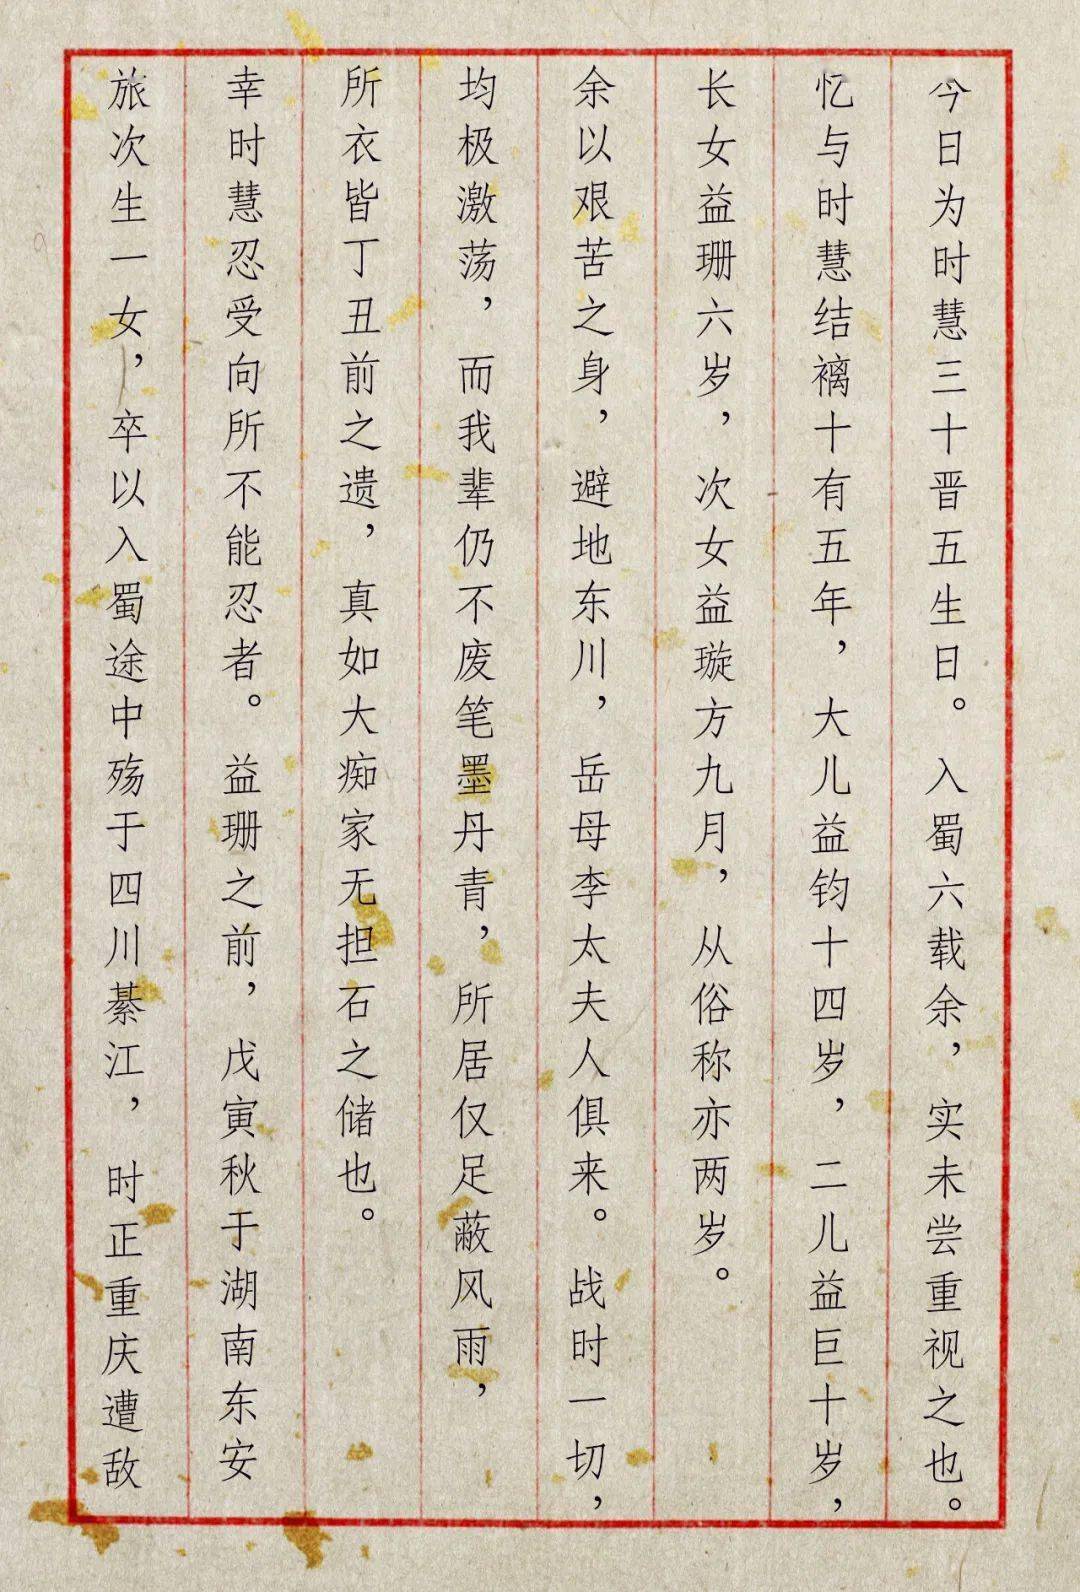 今日为时慧三十晋五生日。入蜀六载余，实未尝重视之也。
忆与时慧结褵十有五年，大儿益钧十四岁，二儿益巨十岁，
长女益珊六岁，次女益璇方九月，从俗称亦两岁。
余以艰苦之身，避地东川，岳母李太夫人俱来。战时一切，
均极激荡，而我辈仍不废笔墨丹青，所居仅足蔽风雨，
所衣皆丁丑前之遗，真如大痴家无担石之储也。
幸时慧忍受向所不能忍者。益珊之前，戊寅秋于湖南东安
旅次生一女，卒以入蜀途中殇于四川綦江，时正重庆遭敌